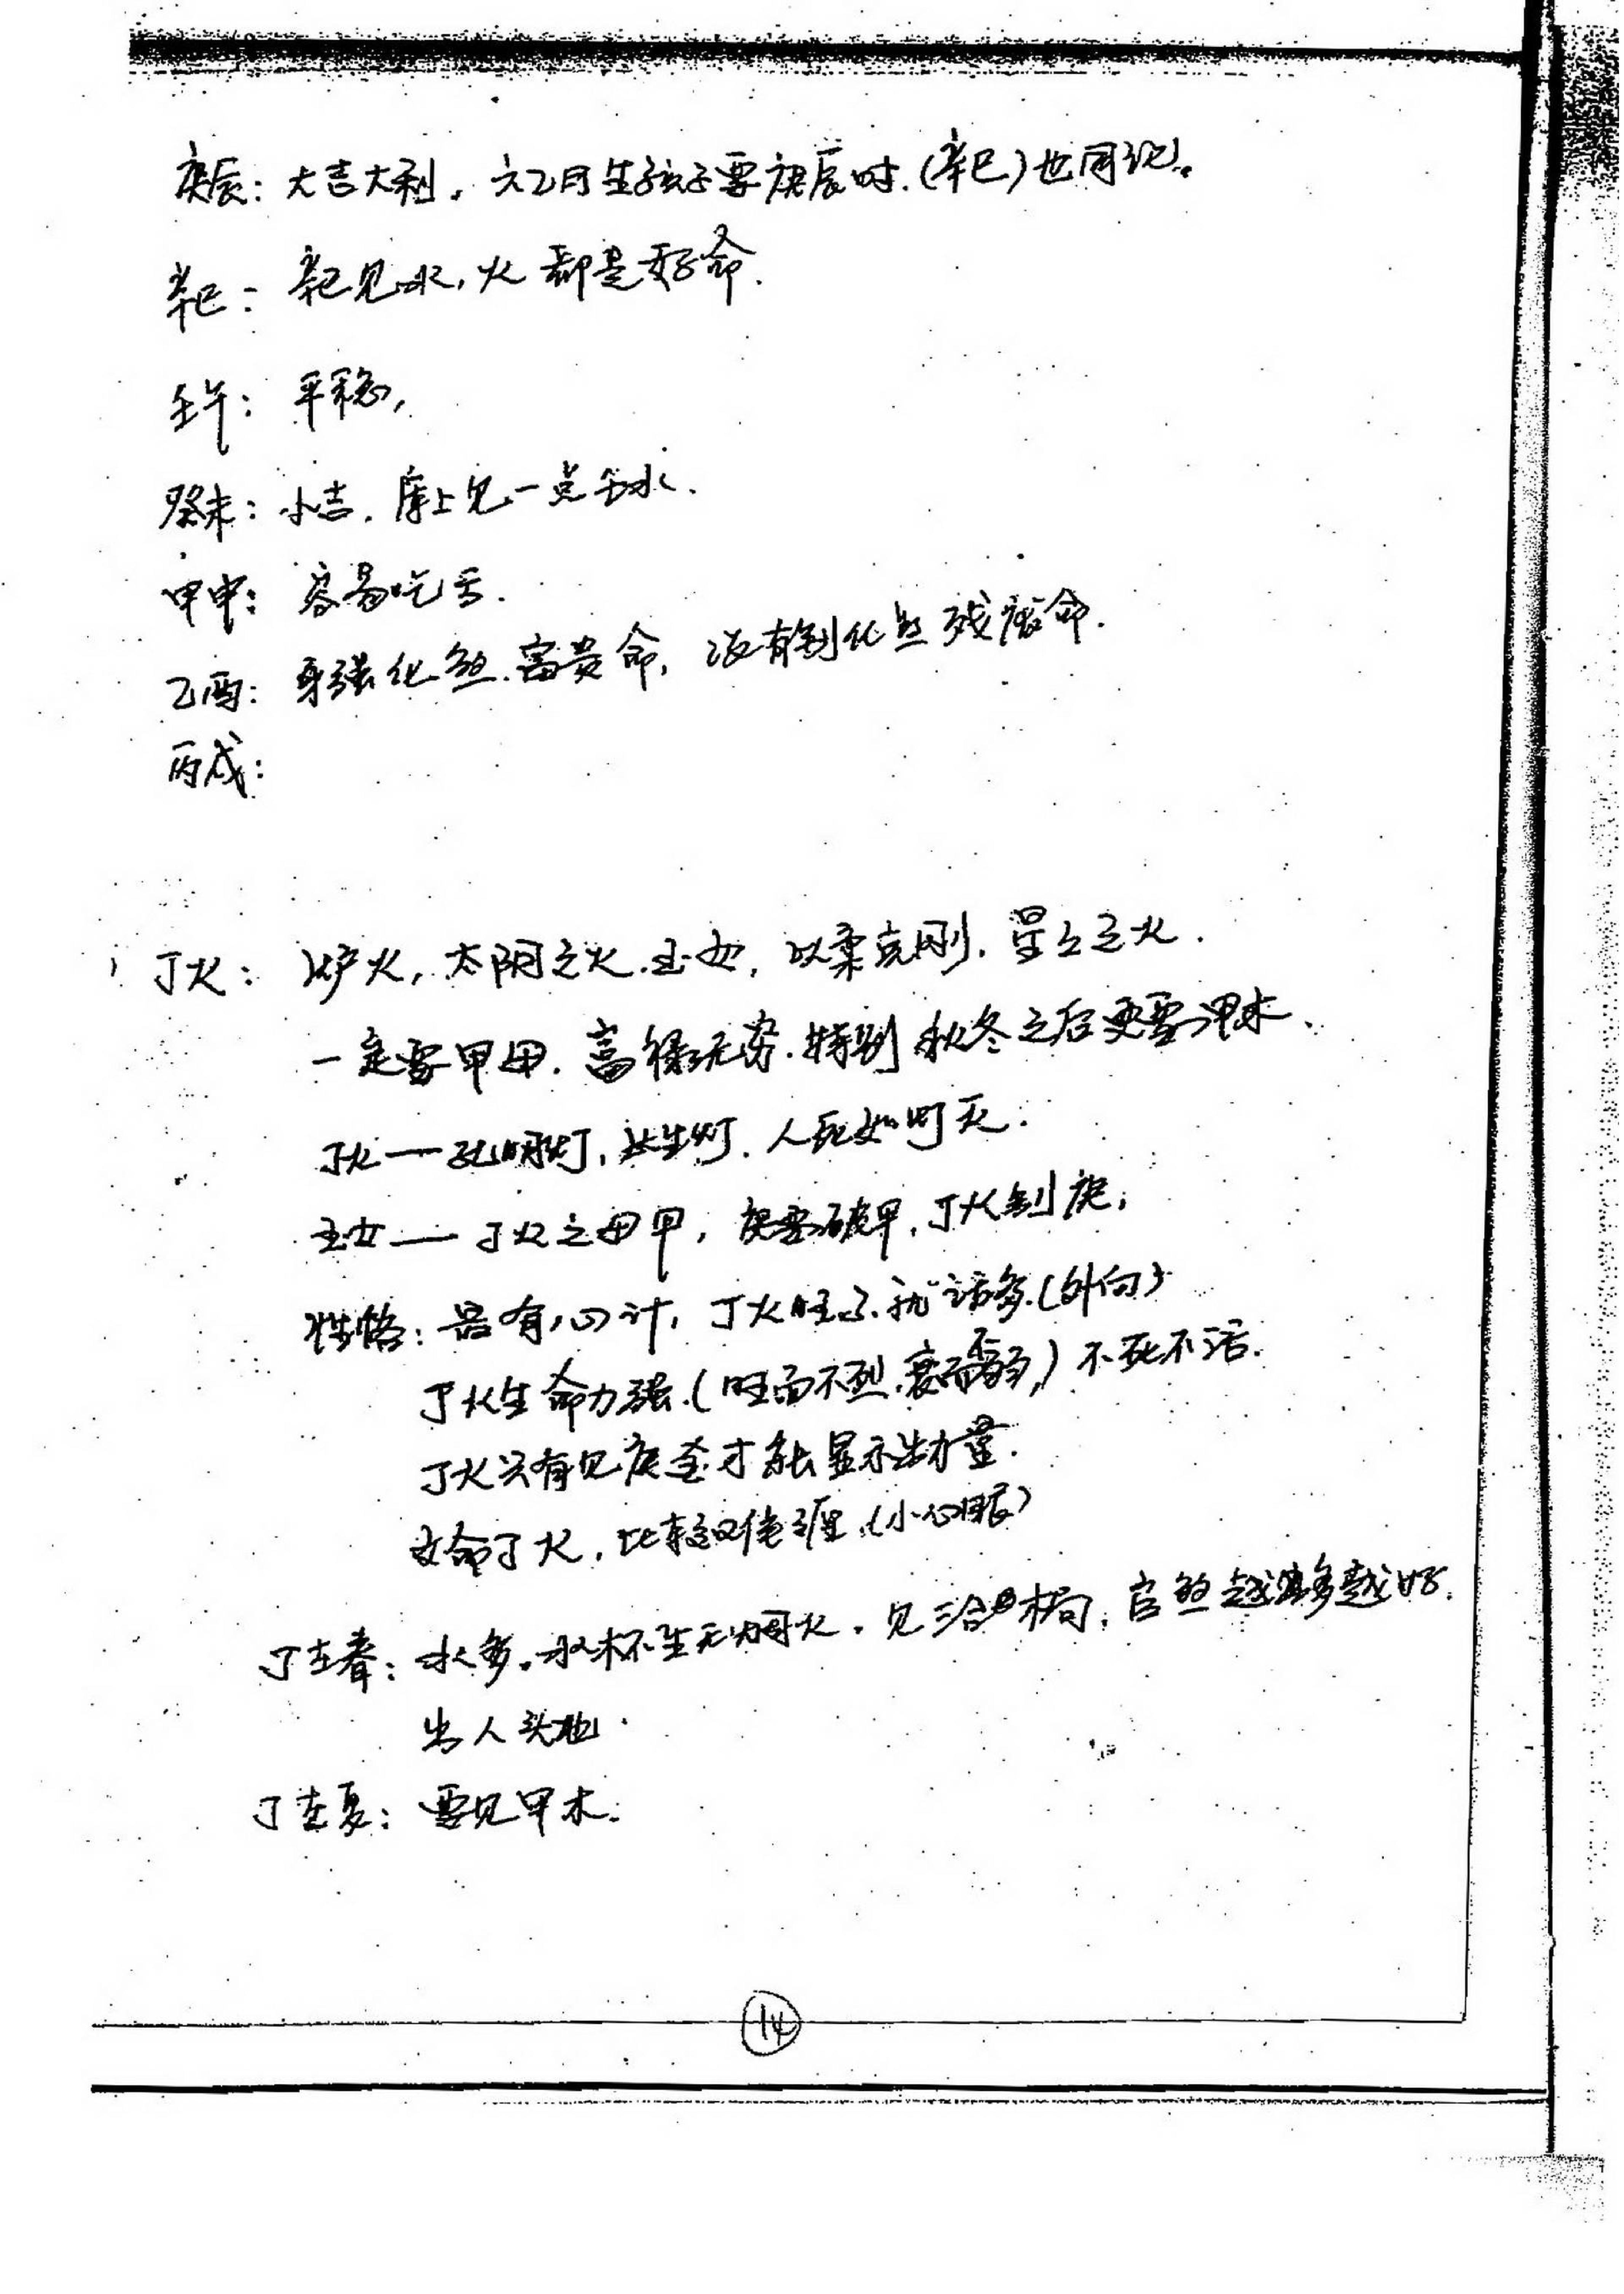 庚辰：大吉大利。六乙日生孩子要庚辰时.(辛巳)也同论。
辛巳：辛巳见水,火都是好命.
壬午：平稳,
癸未：小吉.库上见一点壬水.
甲申：容易吃亏.
乙酉：身强化煞.富贵命,没有制化是残疾命.
丙戌：
丁火：炉火,太阴之火.玉女,以柔克刚.星星之火.
一定要甲母.富禄无穷.特别秋冬之后更要甲木、
丁火一孔明灯,长生灯.人死如灯灭.
玉女一丁火之母甲,庚要破甲,丁火制庚,
性格：最有心计,丁火旺了.就话多.(外向)
丁火生命力强.(旺而不烈.衰而不弱,)不死不活.
丁火只有见庚金才能显示出力量.
女命丁火,比较叹佳涯.(小心眼)
丁在春：水多.水木不生无焰火.见三合木局,官煞越多越好.
出人头地.
丁在夏：要见甲木.
14